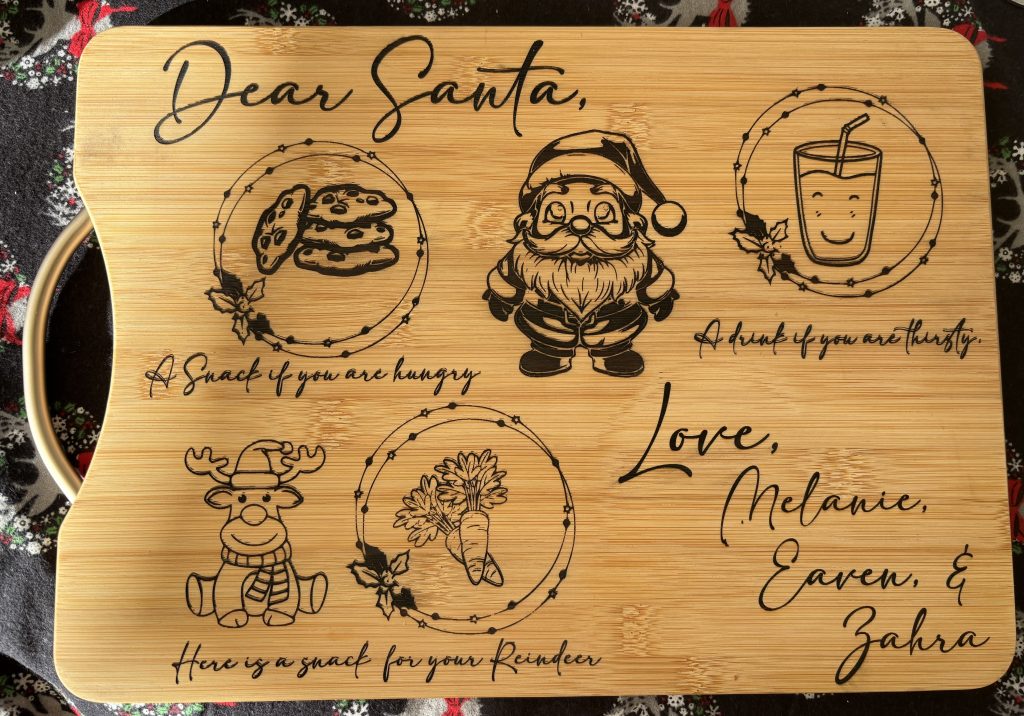 Dear Santa,
A Snack if you are hungry
A drink if you are thirsty.
Here is a snack for your Reindeer
Love,
Melanie,
Eaven, &
Zahra